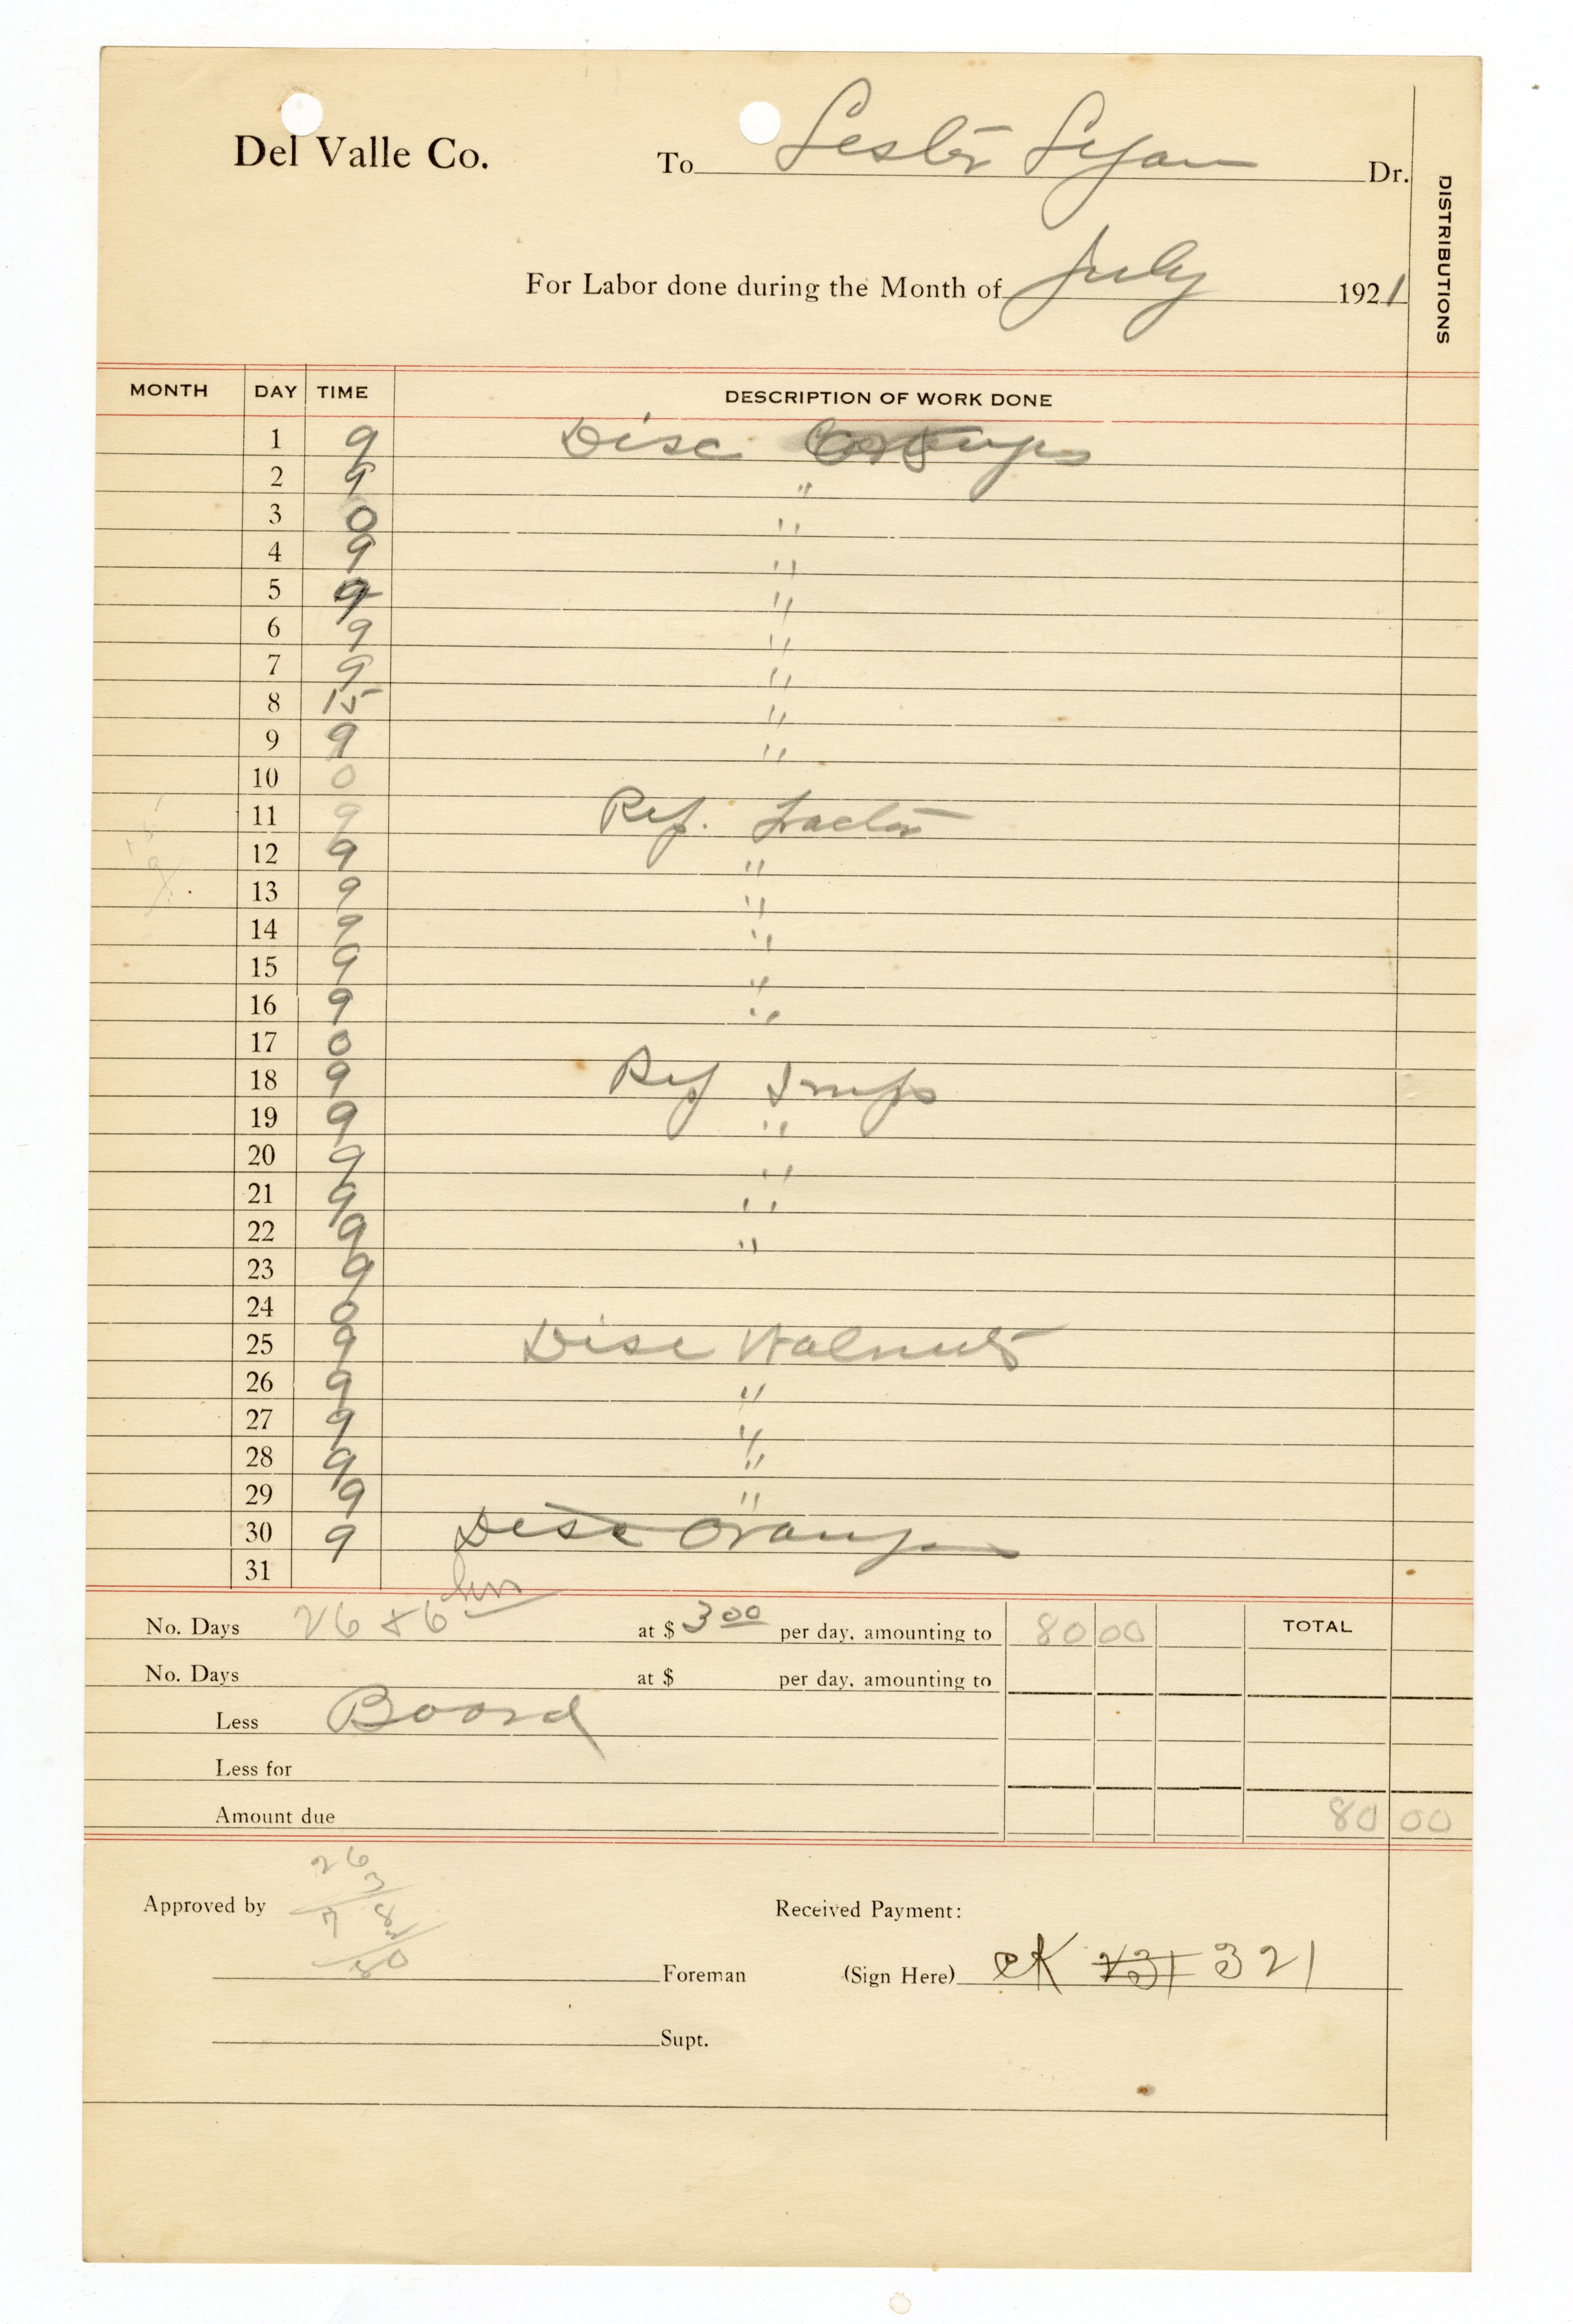 Del Valle Co.
To Lester Lyan Dr.
DISTRIBUTIONS
For Labor done during the Month of July 1921
MONTH DAY TIME DESCRIPTION OF WORK DONE
1 9 Disc Oranges
2 9 "
3 0 "
4 9 "
5 9 "
6 9 "
7 9 "
8 15 "
9 9 "
10 0
11 9 Rep. Tractor
12 9 "
13 9 "
14 9 "
15 9 "
16 9 "
17 0
18 9 Rep Imps
19 9 "
20 9 "
21 9 "
22 9 "
23 9
24 0
25 9 Disc Walnuts
26 9 "
27 9 "
28 9 "
29 9 "
30 9 Disc Oranges
31
No. Days 26 & 6 hrs at $ 3 00 per day, amounting to 80 00 TOTAL
No. Days at $ per day, amounting to
Less Board
Less for
Amount due 80 00
26
3
78
2
80
Approved by Received Payment:
Foreman (Sign Here) CK 231 321
Supt.